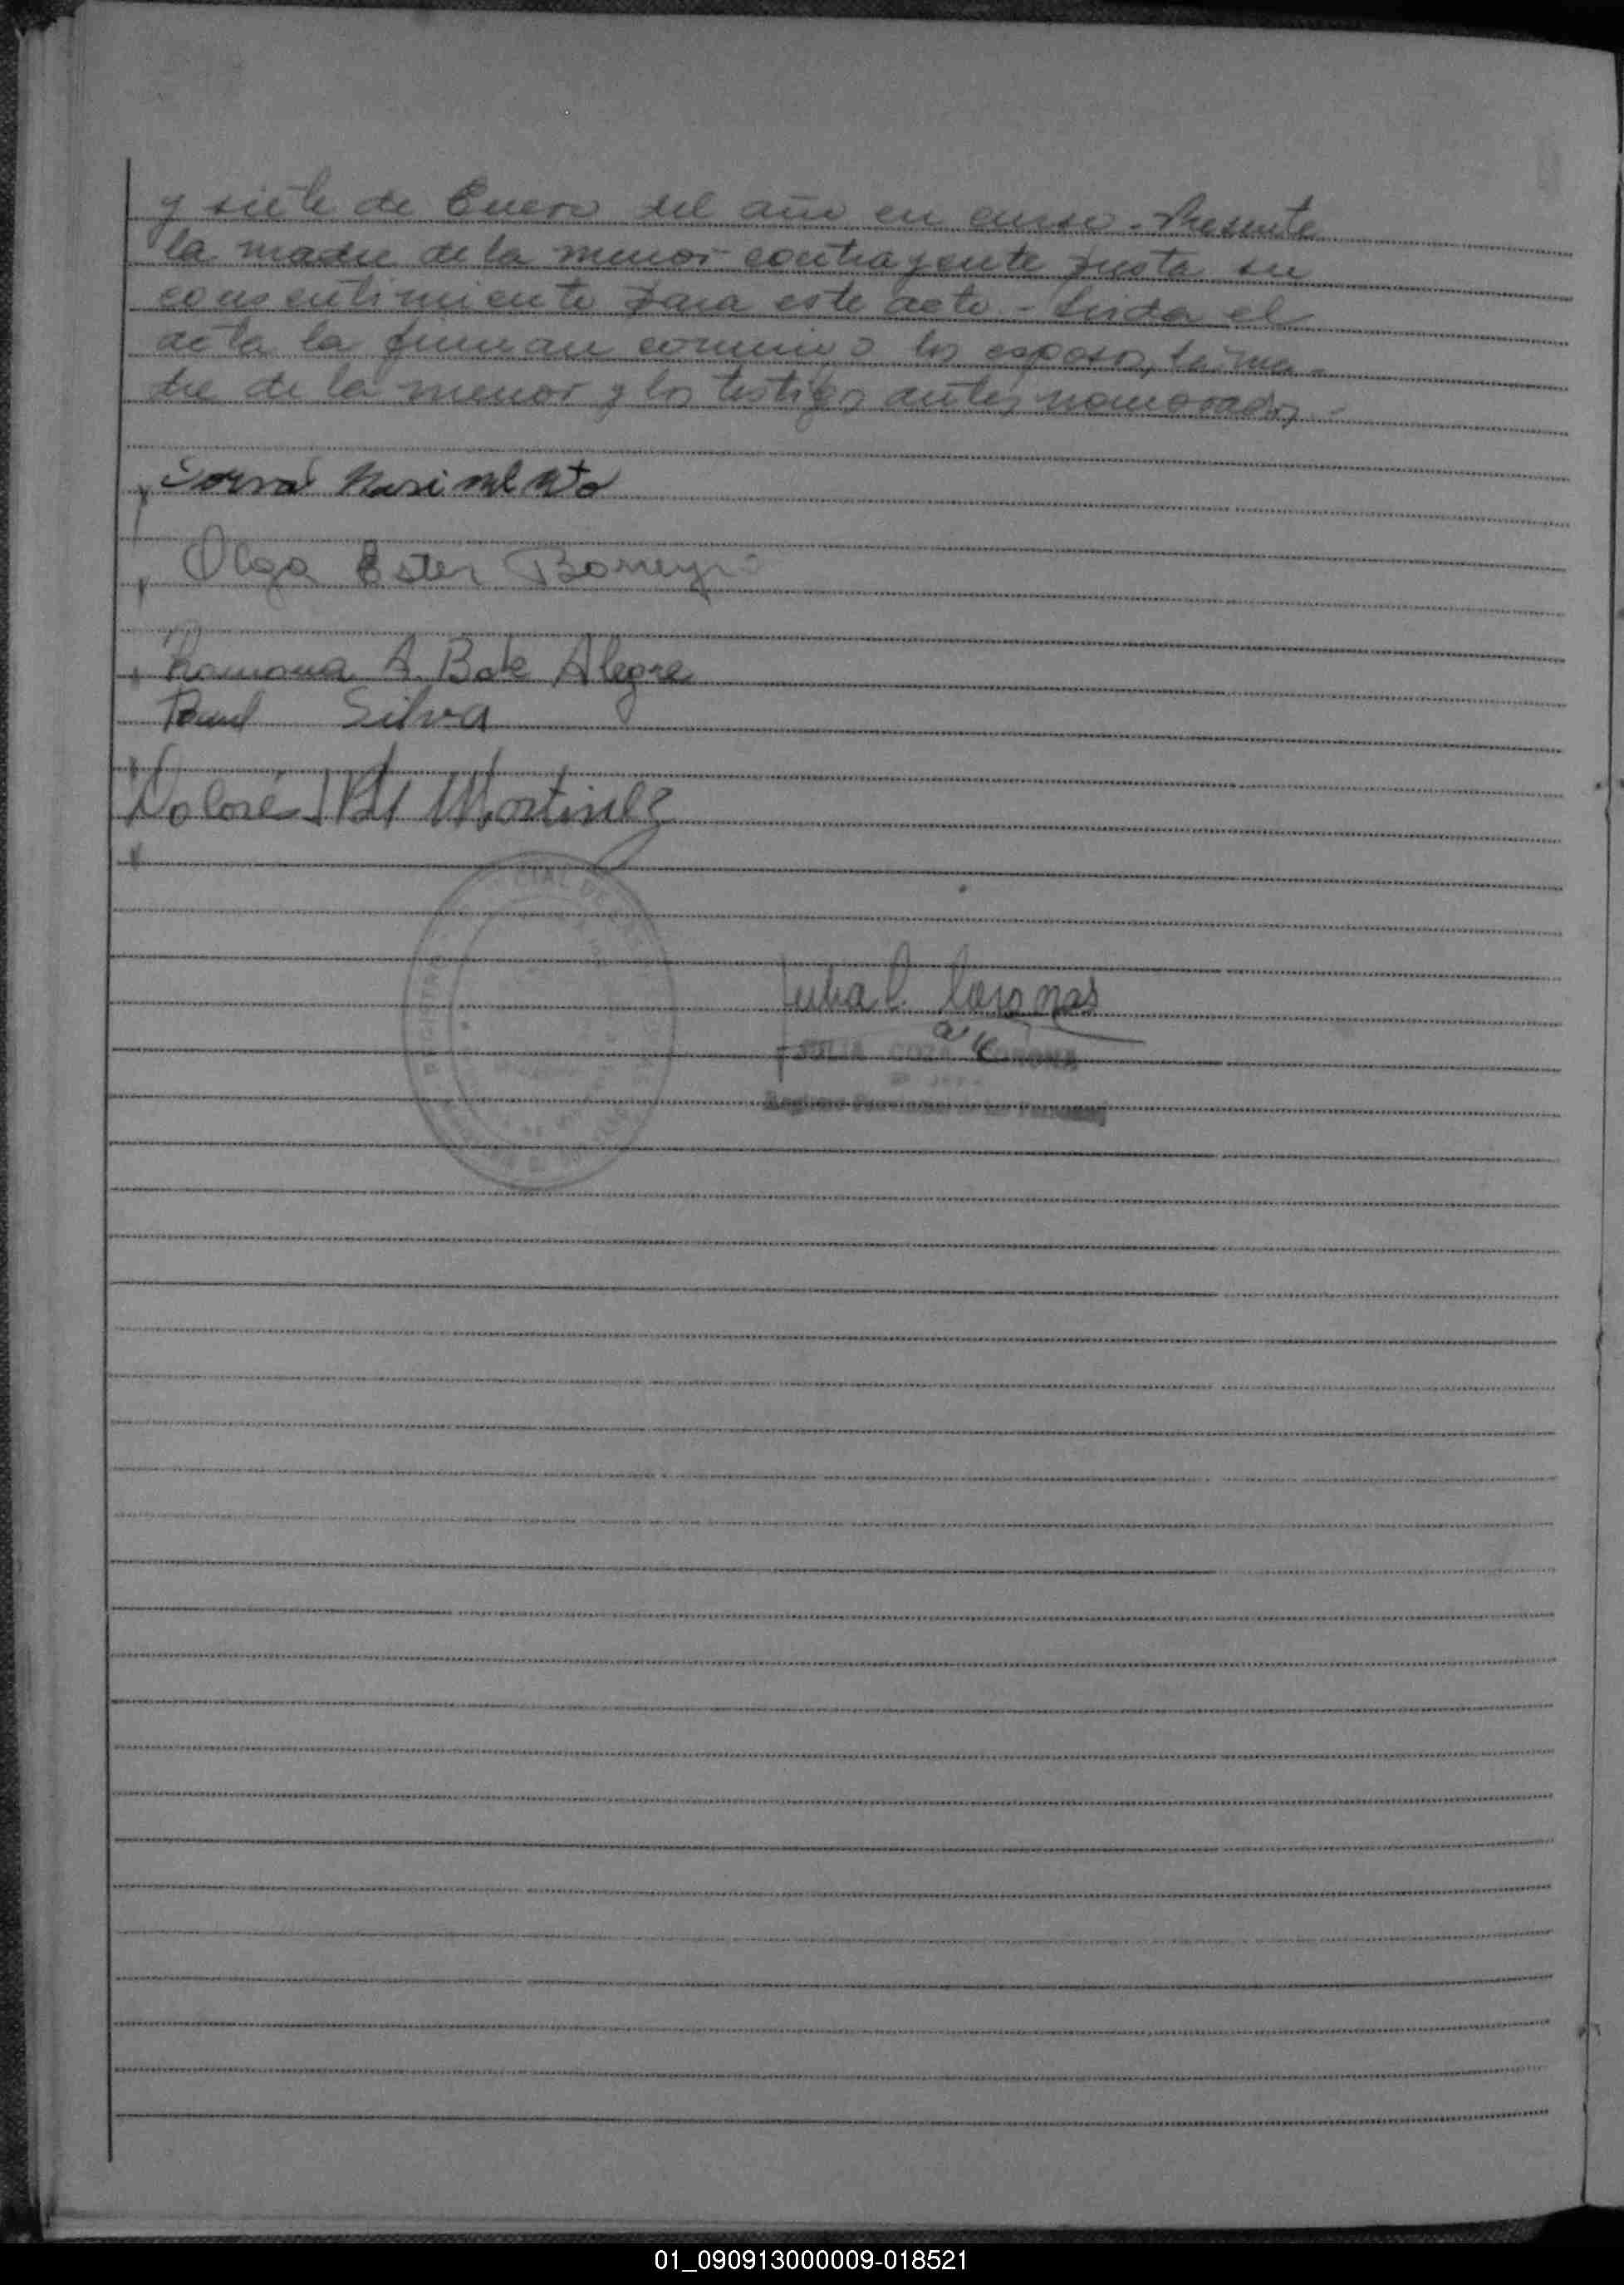 y siete de Enero del año en curso. Presente
la madre de la menor contrayente presta su
consentimiento para este acto. - Leida el
acta la firman conmigo los esposos, la ma-
dre de la menor y los testigos antes nombrados. -
Olga Ester Borreyro
Ramona A. Bote Alegre
Raul Silva
Dolores Martinez
Julia C. Coronas
JULIA CORONA
01_090913000009-018521